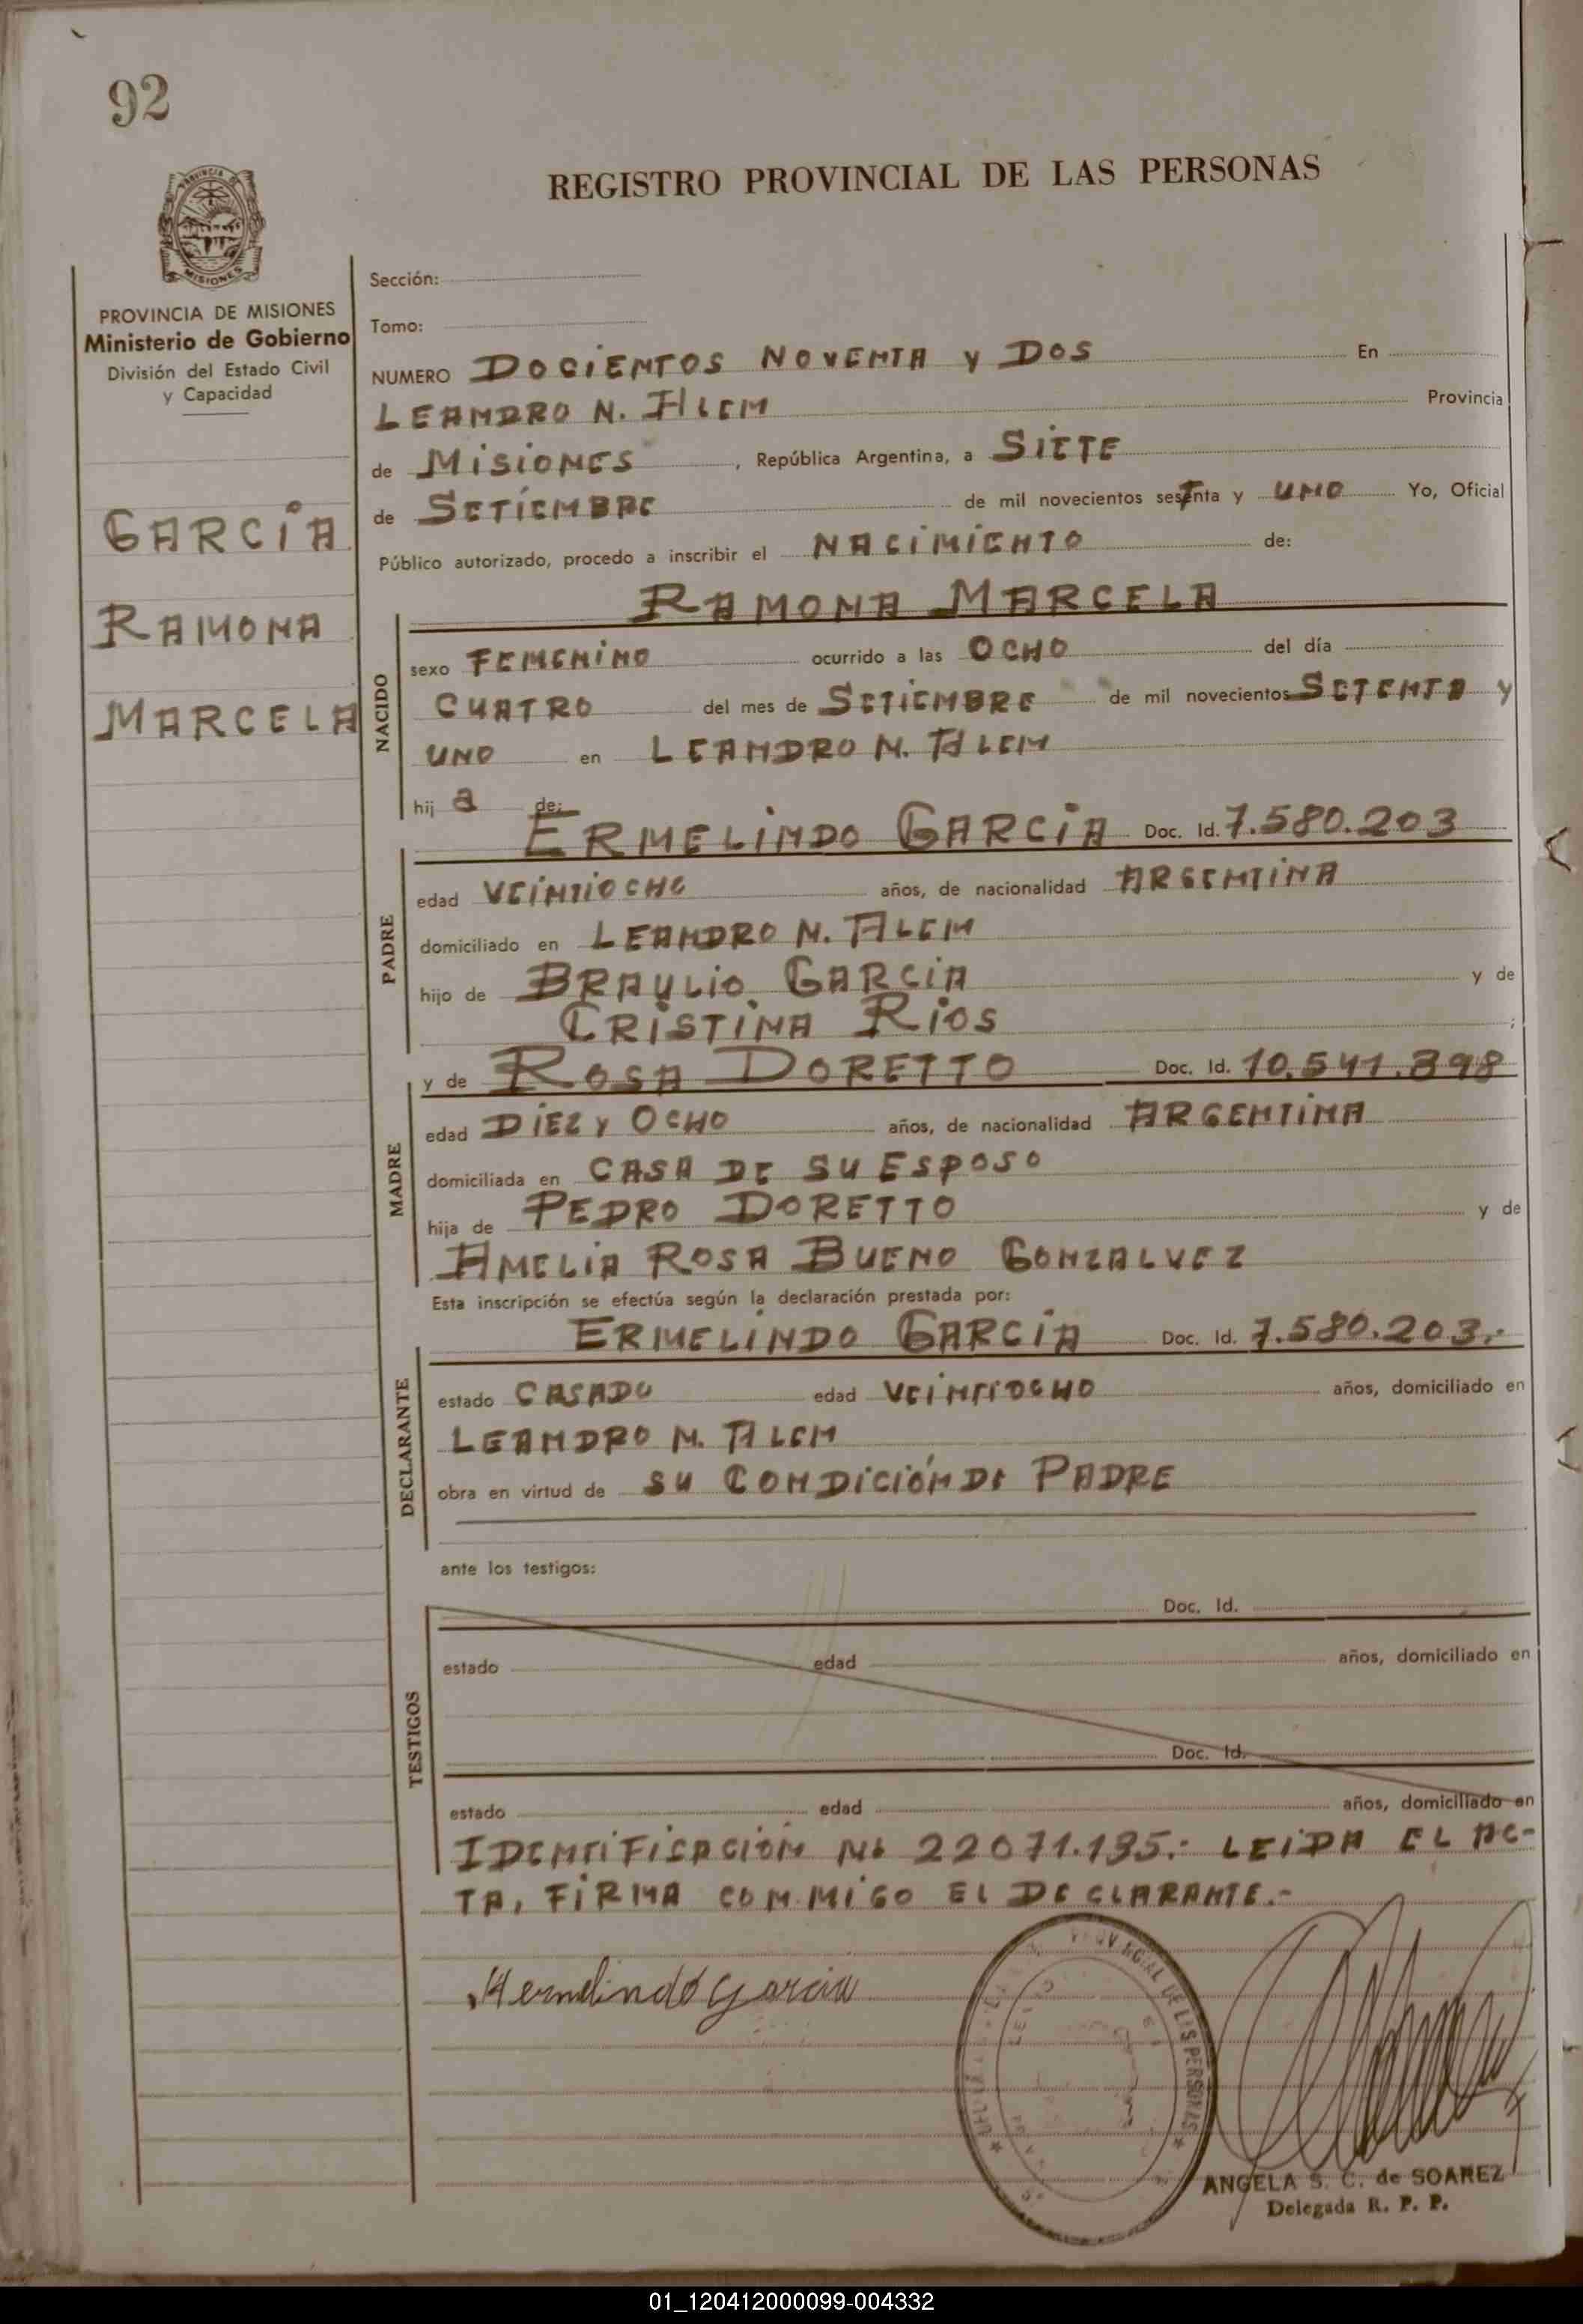 92
REGISTRO PROVINCIAL DE LAS PERSONAS
PROVINCIA DE MISIONES
Ministerio de Gobierno
División del Estado Civil
y Capacidad
GARCÍA
RAMONA
MARCELA
Sección:
Tomo:
NUMERO DOCIENTOS NOVENTA Y DOS En
LEANDRO N. ALEM Provincia
de MISIONES, República Argentina, a SIETE
de SETIEMBRE de mil novecientos setenta y UNO Yo, Oficial
Público autorizado, procedo a inscribir el NACIMIENTO de:
RAMONA MARCELA
NACIDO
sexo FEMENINO ocurrido a las OCHO del día
CUATRO del mes de SETIEMBRE de mil novecientos SETENTA y
UNO en LEANDRO N. ALEM
hij a de:
ERMELINDO GARCIA Doc. Id. 7.580.203
PADRE
edad VEINTIOCHO años, de nacionalidad ARGENTINA
domiciliado en LEANDRO N. ALEM
hijo de BRAULIO GARCIA y de
CRISTINA RIOS ;
y de ROSA DORETTO Doc. Id. 10.541.398
MADRE
edad DIEZ Y OCHO años, de nacionalidad ARGENTINA
domiciliada en CASA DE SU ESPOSO
hija de PEDRO DORETTO y de
AMELIA ROSA BUENO GONZALVEZ
Esta inscripción se efectúa según la declaración prestada por:
ERMELINDO GARCÍA Doc. Id. 7.580.203.-
DECLARANTE
estado CASADO edad VEINTIOCHO años, domiciliado en
LEANDRO N. ALEM
obra en virtud de SU CONDICIÓN DE PADRE
ante los testigos:
Doc. Id.
TESTIGOS
estado edad años, domiciliado en
Doc. Id.
estado edad años, domiciliado en
IDENTIFICACIÓN No 22071.135.- LEIDA EL AC-
TA, FIRMA CONMIGO EL DECLARANTE.-
Hermelindo Garcia
PROVINCIAL DE LAS PERSONAS
ANGELA S. C. de SOAREZ
Delegada R. P. P.
01_120412000099-004332